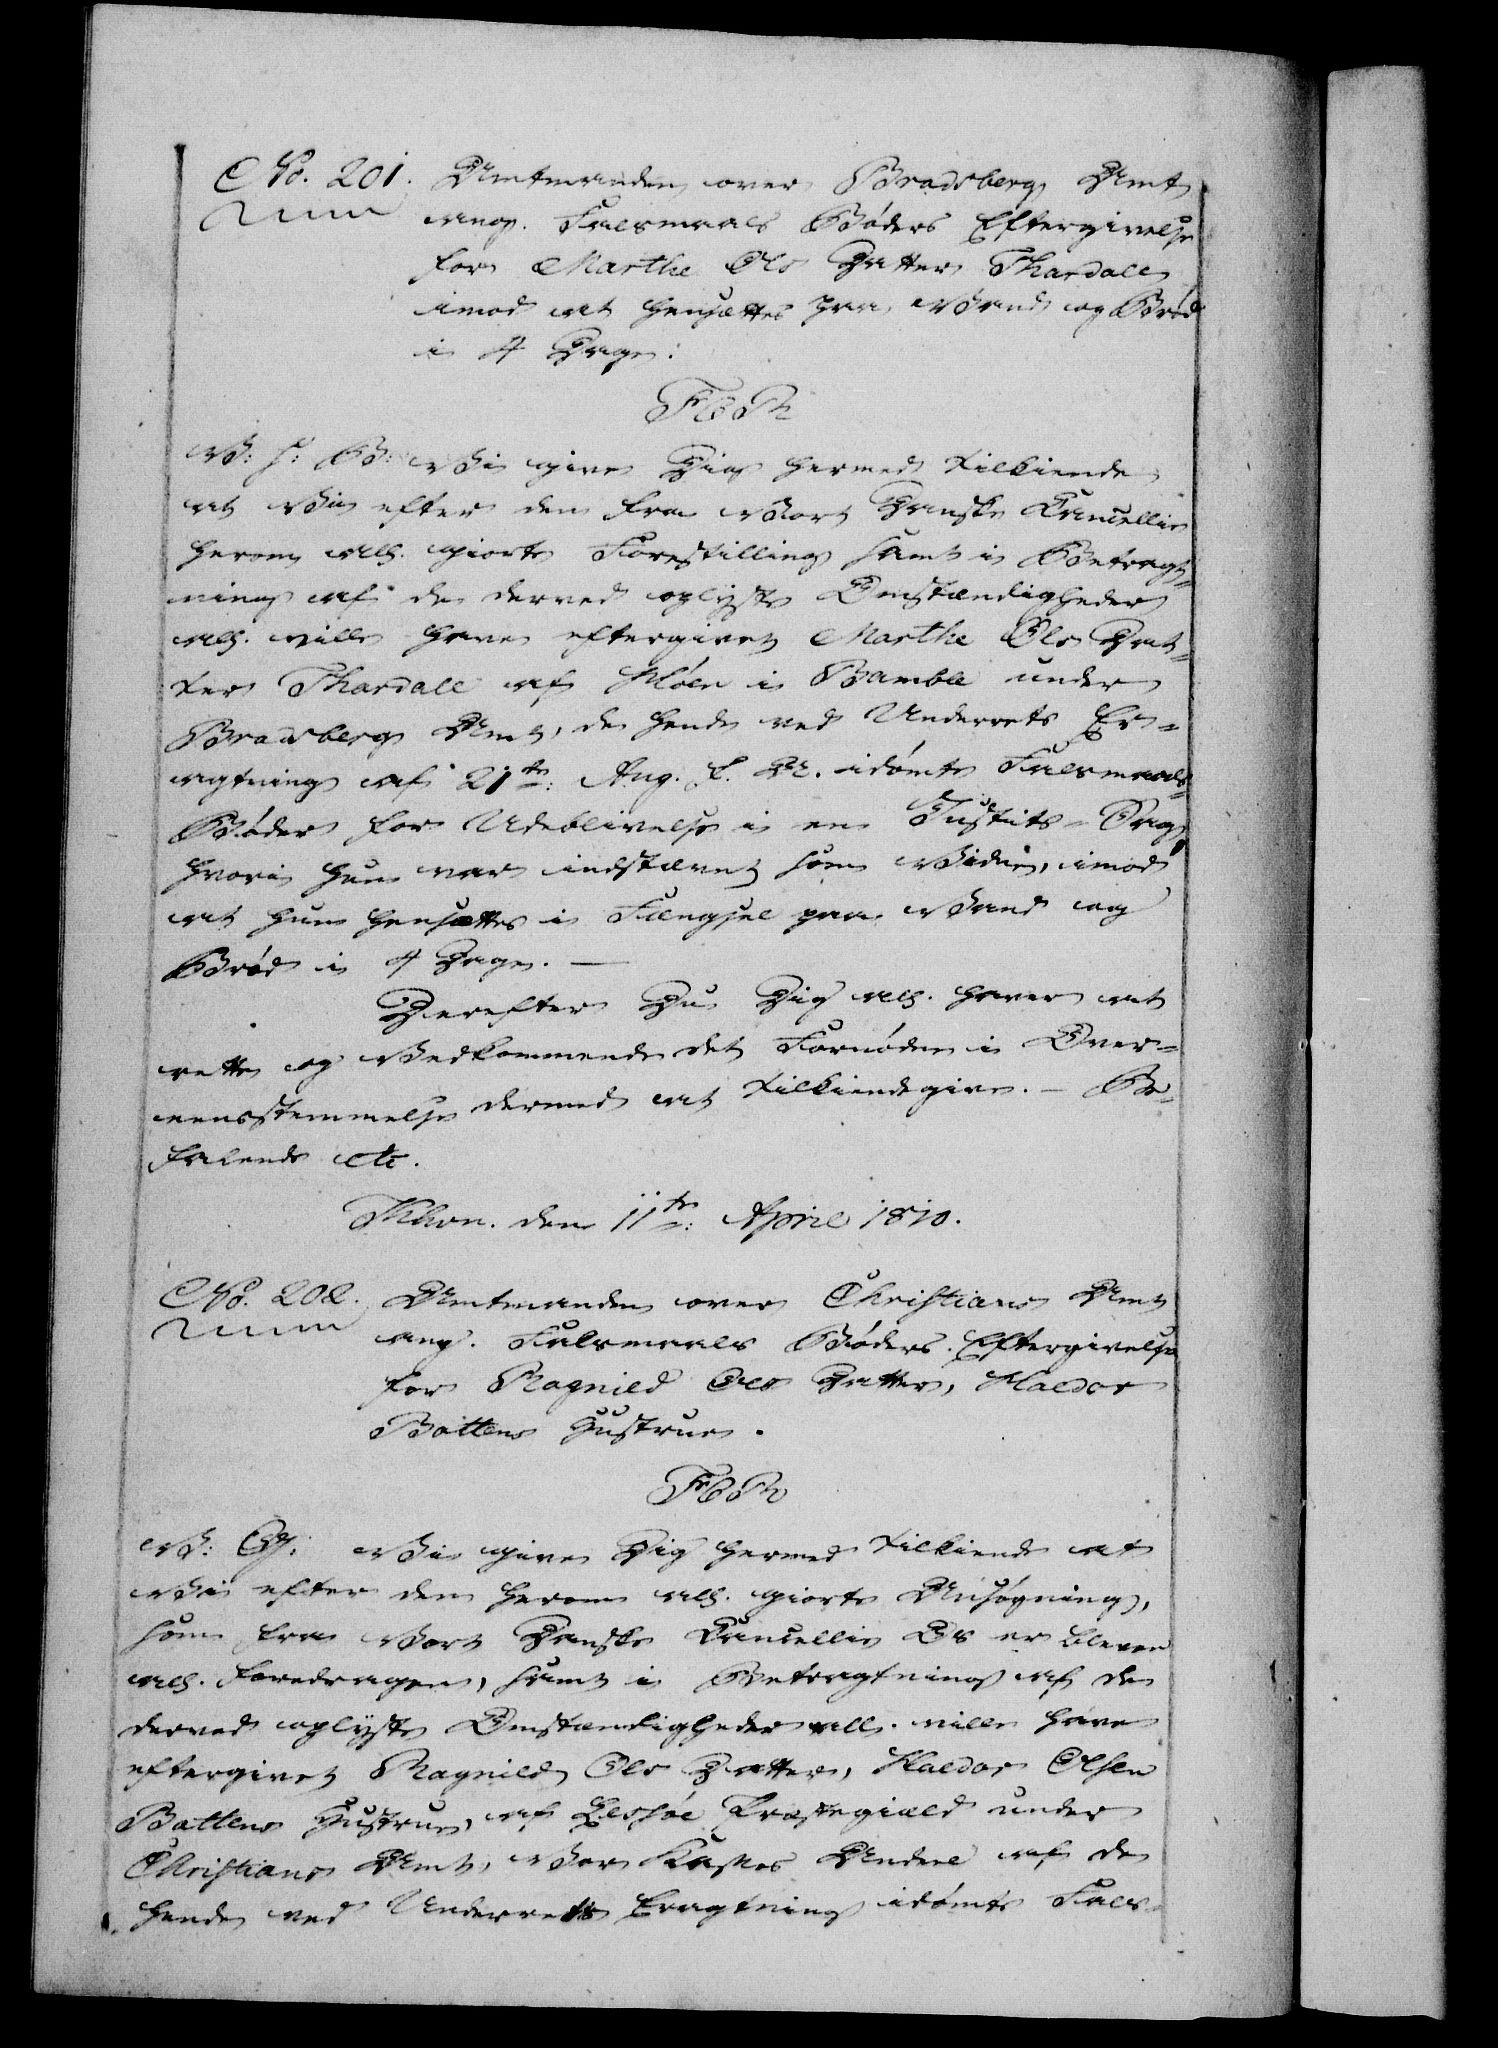 No. 201. Amtmanden over Bradsberg Amt
ang. Falsmaals Bøders Eftergivelse
for Marthe Ols Datter Thardale
imod at hensættes paa Vand og Brød
i 4 Dage.
F 6 R
V: S: G: Vi give Dig hermed tilkiende
at Vi efter den fra Vort Danske Cancellie
herom alls. giorte Forestilling samt i Betragt-
ning af de derved oplyste Omstændigheder
alls. ville have eftergivet Marthe Ols Dat-
ter Thardale af i Bamble under
Bradsberg Amt, de hende ved Underrets Er-
agtning af 21de Aug. f. A. idømte Falsmaals-
Bøder for Udeblivelse i en Justits-Sag,
hvori hun var indstævnt som Vidne, imod
at hun hensættes i Fængsel paa Vand og
Brød i 4 Dage. —
Derefter Du Dig alls. haver at
rette og Vedkommende det Fornødne i Over-
eensstemmelse dermed at tilkiendegive. — Be-
falende etc.
Khvn. den 11te April 1810.
No. 202. Amtmanden over Christians Amt
ang. Falsmaals Bøders Eftergivelse
for Ragnild Ols Datter, Haldor
Battens Hustrue.
F 6 R
V: G: Vi give Dig hermed tilkiende at
Vi efter den herom alls. giorte Ansøgning,
som fra Vort Danske Cancellie Os er bleven
alls. foredragen, samt i Betragtning af de
derved oplyste Omstændigheder alls. ville have
eftergivet Ragnild Ols Datter, Haldor Olsen
Battens Hustrue, af Lessøe Præstegiæld under
Christians Amt, Vor Kasses Andeel af de
hende ved Underrets Eragtning idømte Fals-